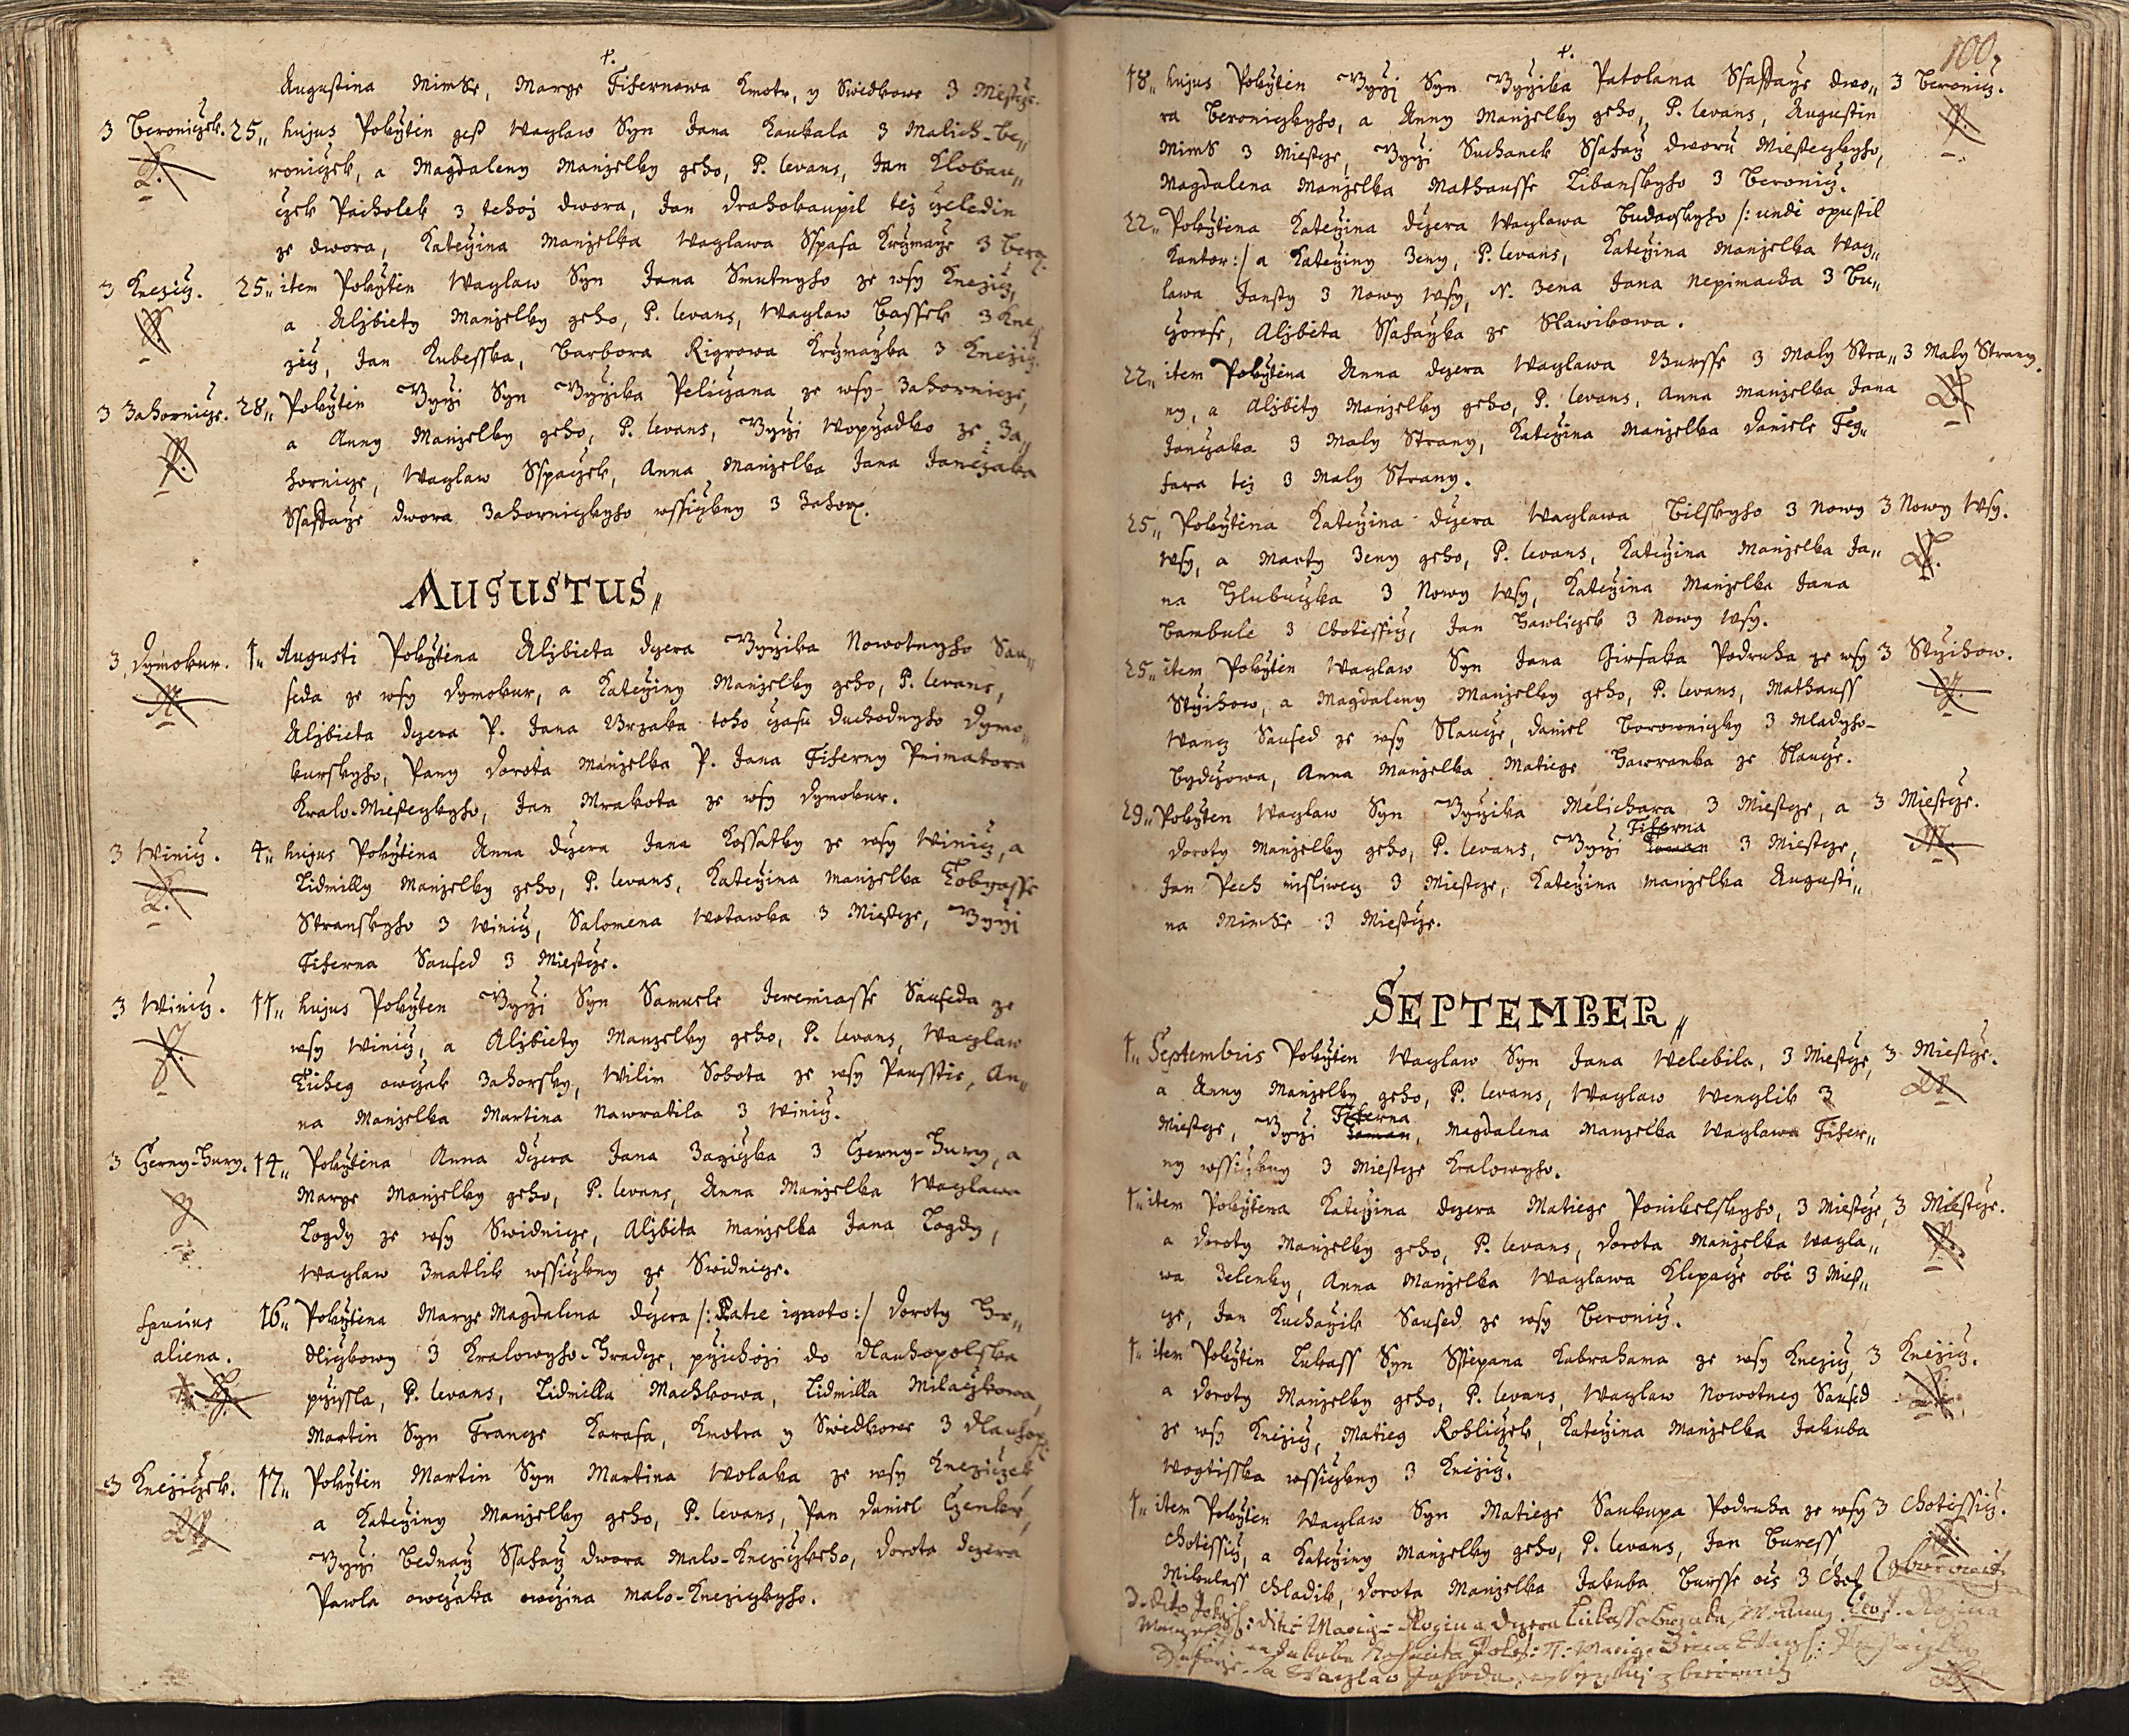 Augustina Mimbe, Marye Fifernowa Kmotr, y Swiedkowe 3 Miestcze.
3 Beroniczek. 25„ hujus Pokrztin gest Waczlaw Syn Jana Kaukala 3 Malich-Be„
roniczek, a Magdaleny Manzelky geho, P. levans, Jan Klobau„
czek Pacholek 3 tehoz dwora, Jan Drahokaupil tez czeledin
ze dwora, Katerzina Manzelka Waczlawa Sspasa Krczmarze 3 Bero.
3 Knezicz. 25„ item Pokrztin Waczlaw Syn Jana Smutnyho ze wsy Knezicz,
a Alzbiety Manzelky geho, P. levans, Waczlaw Bassek 3 Kne„
zicz, Jan Kubesska, Barbora Rigrowa Krczmarzka 3 Knezicz.
3 Zahornicze. 28„ Pokrztin Girzi Syn Girzika Peliczana ze wsy Zahornicze,
a Anny Manzelky geho, P. levans, Girzi Woprzadko ze Za„
hornicze, Waczlaw Sspaczek, Anna Manzelka Jana Janczaka
Ssaffarze dwora Zahorniczkyho wssiczkny 3 Zahor.
AUGUSTUS„
3 Dymokur. 1„ Augusti Pokrztena Alzbieta dczera Girzika Nowotnyho Sau„
seda ze wsy Dymokur, a Katerziny Manzelky geho, P. levans,
Alzbieta dczera P. Jana Brzaka toho czasu duchodnyho Dymo„
kurskyho, Pany Dorota Manzelka P. Jana Fiferny Primatora
Kralo-Miesteczkyho, Jan Mrakota ze wsy Dymokur.
3 Winicz. 4„ hujus Pokrztina Anna dczera Jana Kossatky ze wsy Winicz, a
Lidmilly Manzelky geho, P. levans, Katerzina Manzelka Tobyasse
Stranskyho 3 Winicz, Salomena Wotawka 3 Miestcze, Girzi
Fiferna Saused 3 Miestcze.
3 Winicz. 11„ hujus Pokrzten Girzi Syn Samuele Jeremiasse Sauseda ze
wsy Winicz, a Alzbiety Manzelky geho, P. levans, Waczlaw
Tucheg owczak Zahorsky, Wilim Sobota ze wsy Pansstie, An„
na Manzelka Martina Nawratila 3 Winicz.
3 Czerny-Hury. 14„ Pokrztina Anna dczera Jana Zagiczka 3 Czerny-Hury, a
Marye Manzelky geho, P. levans, Anna Manzelka Waczlawa
Logdy ze wsy Swidnicze, Alzbeta Manzelka Jana Logdy,
Waczlaw Zmatlik wssiczkny ze Swidnicze.
spurius 16„ Pokrztina Marye Magdalena dczera /: Patre ignoto :/ Doroty He„
aliena. dliczkowy 3 Kralowyho-Hradcze, przichozi do Dlauhopolska
przissla, P. levans, Lidmilla Machkowa, Lidmilla Milaczkowa,
Martin Syn Francze Karasa, Kmotra y Swiedkowe 3 Dlauhop.
3 Kneziczek. 17„ Pokrztin Martin Syn Martina Wolaka ze wsy Kneziczek
a Katerziny Manzelky geho, P. levans, Pan Daniel Czenky,
Girzi Bednarz Ssafarz dwora Malo-Kneziczkeho, Dorota dczera
Pawla owczaka owczina Malo-Kneziczkyho.
100.
18„ hujus Pokrztin Girzi Syn Girzika Patolana Ssaffarze dwo„ 3 Beronicz.
ra Beroniczkyho, a Anny Manzelky geho, P. levans, Augustin
Mimb 3 Miestcze, Girzi Suchanek Ssafarz dworu Miesteczkyho,
Magdalena Manzelka Mathausse Libanskyho 3 Beronicz.
22„ Pokrztina Katerzina dczera Waczlawa Budaoskyho /: unde opustil
Kantor :/ a Katerziny Zeny, P. levans, Katerzina Manzelka Wacz„
lawa Jansty 3 Nowy Wsy, N. Zena Jana Nepimacha 3 Bu„
czowse, Alzbeta Ssafarzka ze Slawikowa.
22„ item Pokrztina Anna dczera Waczlawa Buresse 3 Maly Stra„ 3 Maly Strany.
ny, a Alzbety Manzelky geho, P. levans, Anna Manzelka Jana
Janczaka 3 Maly Strany, Katerzina Manzelka Daniele Feg„
fara tez 3 Maly Strany.
25„ Pokrztina Katerzina dczera Waczlawa Bilskyho 3 Nowy 3 Nowy Wsy.
Wsy, a Marty Zeny geho, P. levans, Katerzina Manzelka Ja„
na Hlubuczka 3 Nowy Wsy, Katerzina Manzelka Jana
Bambule 3 Chotissicz, Jan Hawliczek 3 Nowy Wsy.
25„ item Pokrztin Waczlaw Syn Jana Girsaka Podruha ze wsy 3 Strzihow.
Strzihow, a Magdaleny Manzelky geho, P. levans, Mathauss
Wancz Saused ze wsy Slaucze, Daniel Borowniczky 3 Mladyho-
Bydczowa, Anna Manzelka Matiege Hawranka ze Slaucze.
29„ Pokrzten Waczlaw Syn Girzika Melichara 3 Miestcze, a 3 Miestcze.
Fiferna
Doroty Manzelky geho, P. levans, Girzi Zaman 3 Miestcze,
Jan Pech misliwecz 3 Miestcze, Katerzina Manzelka Augusti„
na Mimbe 3 Miestcze.
SEPTEMBER„
1„ Septembris Pokrztin Waczlaw Syn Jana Welebila, 3 Miestcze, 3 Miestcze.
a Anny Manzelky geho, P. levans, Waczlaw Wenglik 3
Fiferna
Miestcze, Girzi Zaman, Magdalena Manzelka Waczlawa Fifer„
ny wssiczkny 3 Miestcze Kralowyho.
1„ item Pokrztena Katerzina dczera Matiege Ponikelskyho, 3 Miestcze, 3 Miestcze.
a Doroty Manzelky geho, P. levans, Dorota Manzelka Waczla„
wa Zelenky, Anna Manzelka Waczlawa Klepacze obe 3 Miest„
cze, Jan Kucharzik Saused ze wsy Beronicz.
1„ item Pokrztin Lukass Syn Sstepana Kabrahama ze wsy Knezicz, 3 Knezicz.
a Doroty Manzelky geho, P. levans, Waczlaw Nowotney Saused
ze wsy Knezicz, Matieg Robliczek, Katerzina Manzelka Jakuba
Wogtisska wssiczkny 3 Knezicz.
1„ item Pokrztin Waczlaw Syn Matiege Saukupa Podruha ze wsy 3 Chotissicz.
Chotissicz, a Katerziny Manzelky geho, P. levans, Jan Buress,
Mikulass Chladik, Dorota Manzelka Jakuba Buresse oes 3 Chot.